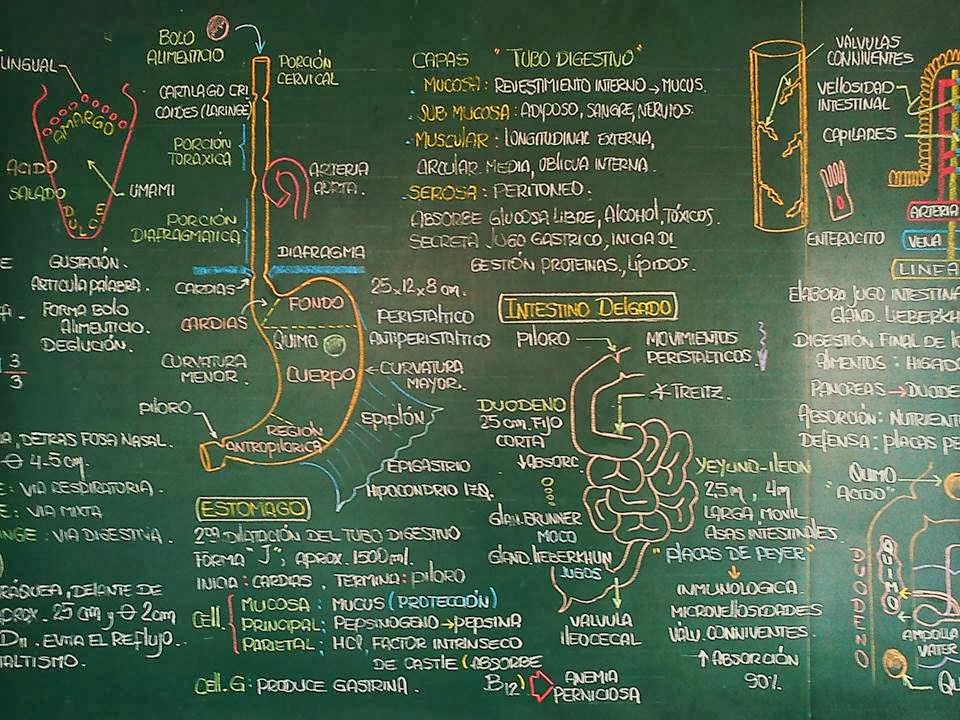 LINGUAL
AMARGO
ACIDO
SALADO
UMAMI
DULCE
GUSTACIÓN.
ARTICULA PALABRA.
FORMA BOLO
ALIMENTICIO.
DEGLUCIÓN.
3
3
DETRAS FOSA NASAL.
Θ 4-5 cm.
E: VIA RESPIRATORIA.
E: VIA MIXTA
NGE: VIA DIGESTIVA.
DELANTE DE
25 cm y Θ 2cm
EVITA EL REFLUJO.
BOLO
ALIMENTICIO
PORCIÓN
CERVICAL
CARTILAGO CRI
COIDES (LARINGE)
PORCIÓN
TORAXICA
ARTERIA
AORTA.
PORCIÓN
DIAFRAGMATICA
DIAFRAGMA
CARDIAS
CARDIAS
FONDO
QUIMO
CUERPO
25x12x8 cm.
PERISTALTICO
ANTIPERISTALTICO
CURVATURA
MENOR.
CURVATURA
MAYOR.
PILORO
REGIÓN
ANTROPILORICA
EPIPLÓN
EPIGASTRIO
HIPOCONDRIO IZQ.
ESTOMAGO
2da DILATACIÓN DEL TUBO DIGESTIVO
FORMA "J", APROX. 1500 ml.
INICIA: CARDIAS, TERMINA: PILORO
CELL.
MUCOSA: MUCUS (PROTECCIÓN)
PRINCIPAL: PEPSINOGENO → PEPSINA
PARIETAL: HCl, FACTOR INTRINSECO
DE CASTLE (ABSORBE
B12)
ANEMIA
PERNICIOSA
CELL. G: PRODUCE GASTRINA.
CAPAS "TUBO DIGESTIVO"
MUCOSA: REVESTIMIENTO INTERNO → MUCUS.
SUB MUCOSA: ADIPOSO, SANGRE, NERVIOS.
MUSCULAR: LONGITUDINAL EXTERNA,
CIRCULAR MEDIA, OBLICUA INTERNA.
SEROSA: PERITONEO.
ABSORBE GLUCOSA LIBRE, ALCOHOL, TÓXICOS.
SECRETA JUGO GASTRICO, INICIA DI
GESTIÓN PROTEINAS, LÍPIDOS.
INTESTINO DELGADO
PILORO
MOVIMIENTOS
PERISTALTICOS
TREITZ.
DUODENO
25 cm. FIJO
CORTA
↓ABSORC.
GLAN. BRUNNER
MOCO
GLAND. LIEBERKHUN
JUGOS
VALVULA
ILEOCECAL
YEYUNO-ILEON
2,5 m, 4m
LARGA, MOVIL
ASAS INTESTINALES.
"PLACAS DE PEYER"
INMUNOLOGICA.
MICROVELLOSIDADES
VALV. CONNIVENTES.
↑ABSORCIÓN
90%.
VÁLVULAS
CONNIVENTES
VELLOSIDAD
INTESTINAL
CAPILARES
ENTEROCITO
ARTERIA
VENA
LINEA
ELABORA JUGO INTESTINA
GLAND. LIEBERKH
DIGESTIÓN FINAL DE
ALIMENTOS: HIGADO
PANCREAS → DUODE
ABSORCIÓN: NUTRIENT
DEFENSA: PLACAS PE
QUIMO
"ACIDO"
QUIMO
DUODENO
AMPOLLA
VATER
QU